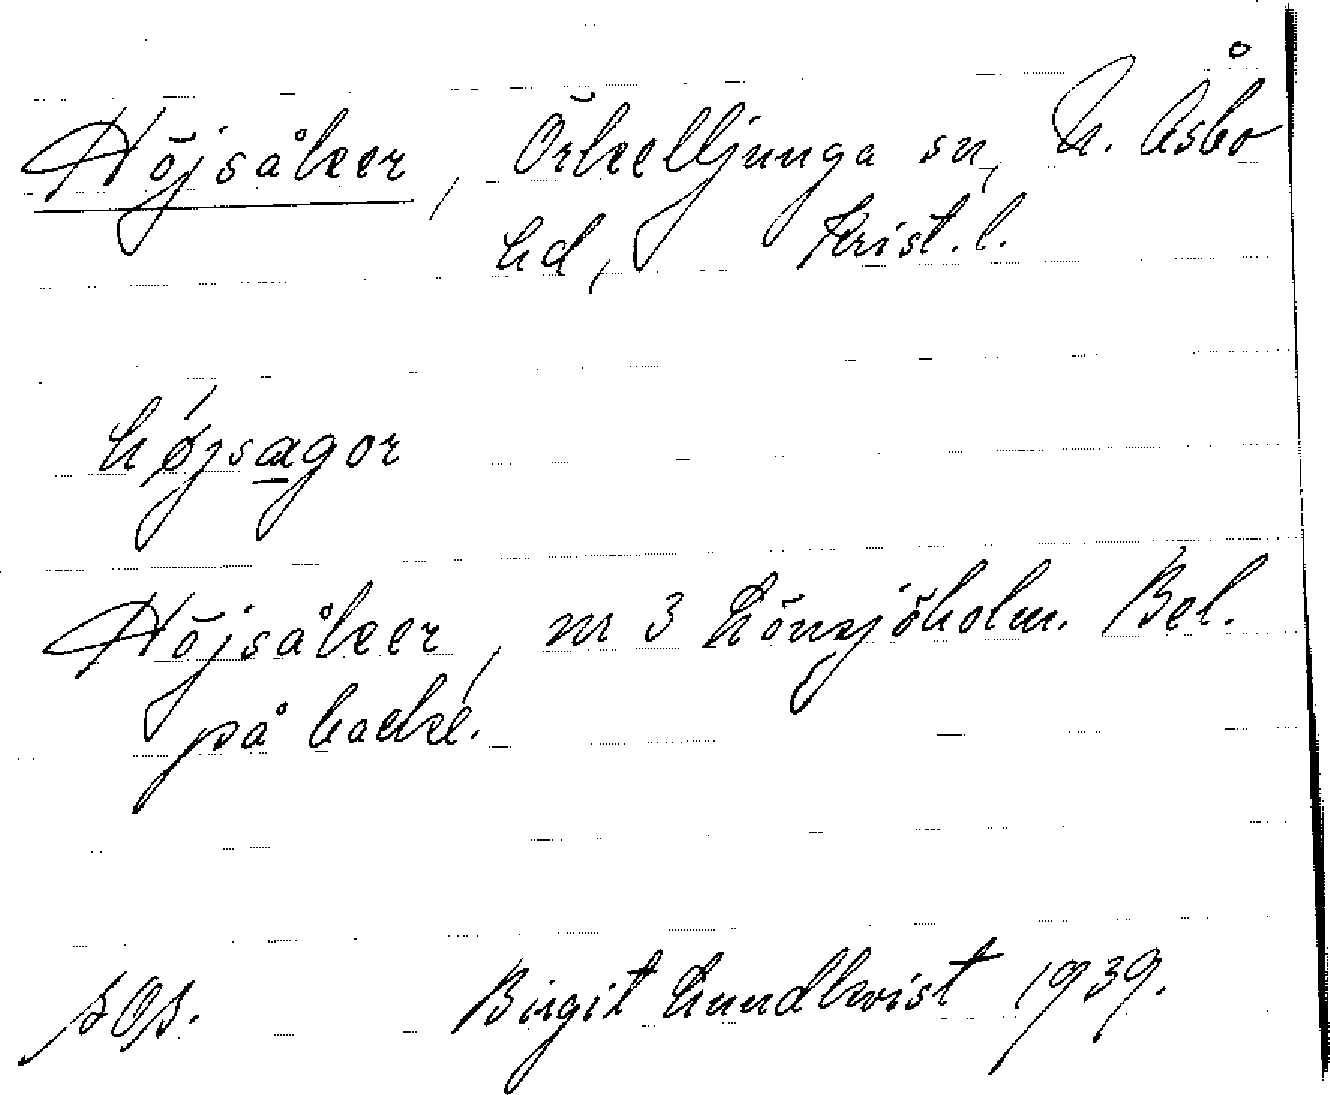 Höjsåker, Örkelljunga sn, N. Åsbo
hd, Krist. l.
højsagor
Höjsåker, nr 3 Lönsjöholm. Bel.
på backe.
Birgit Lundkvist 1939.